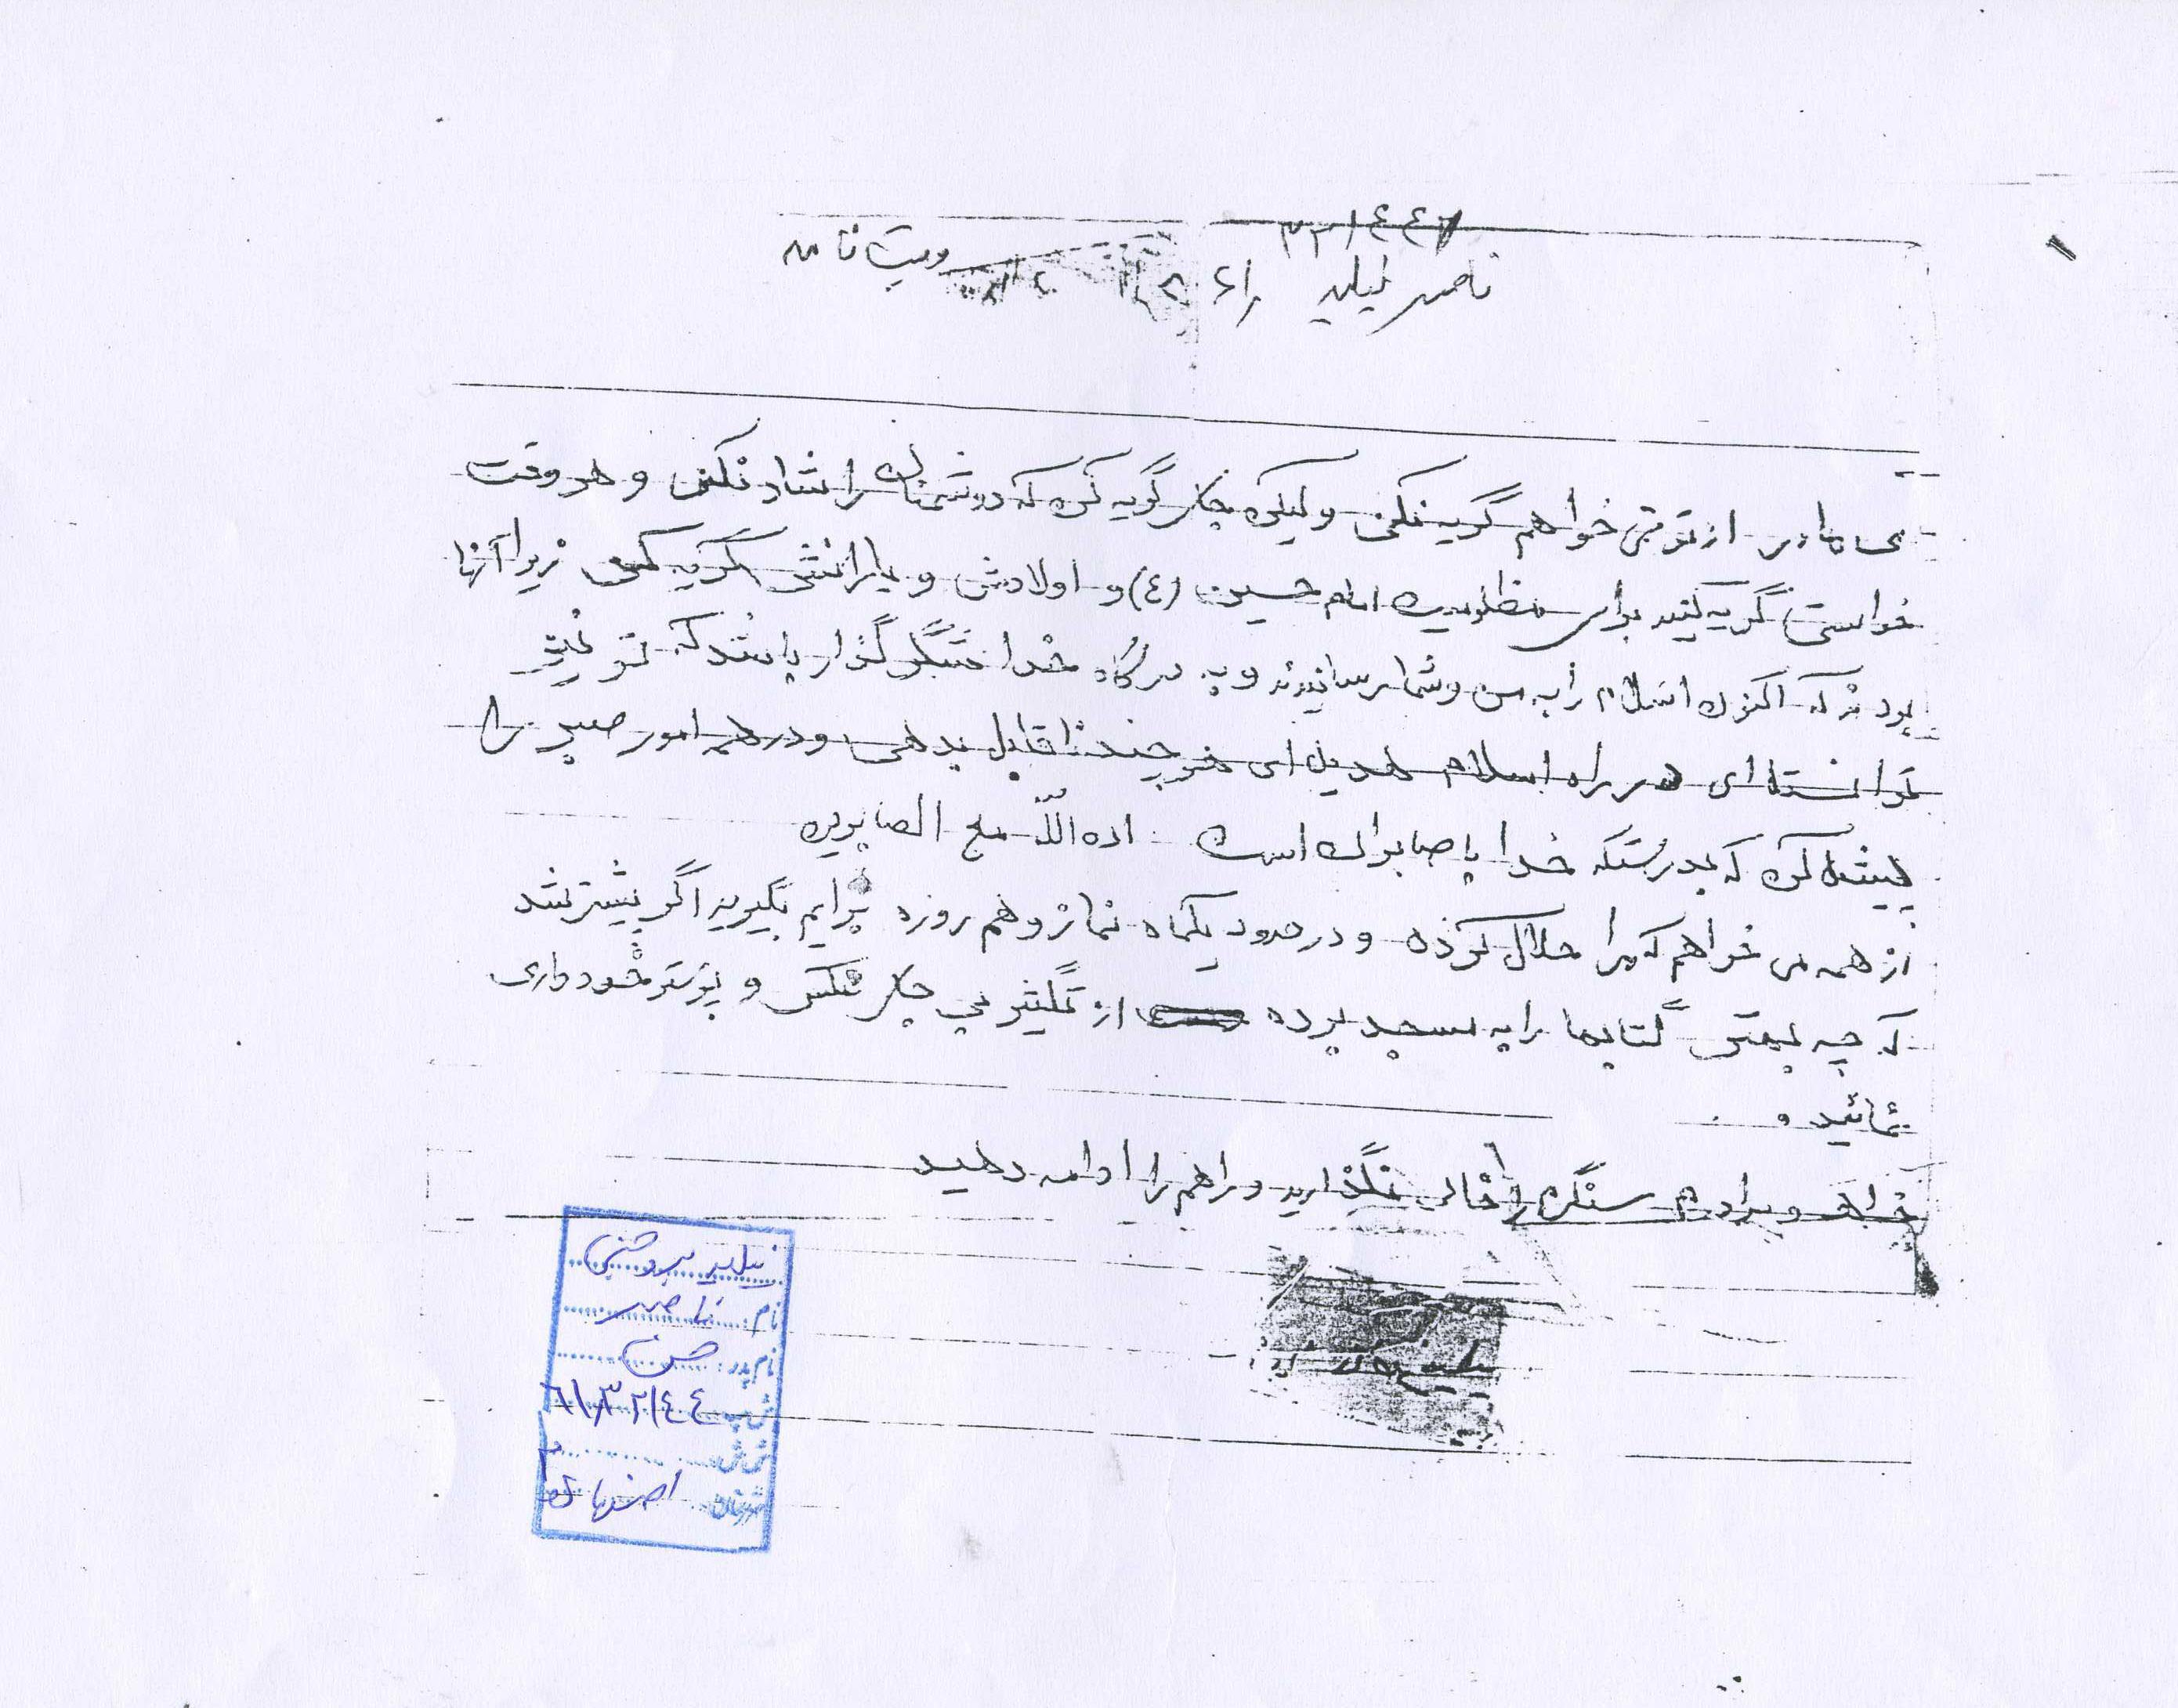 وصیت نامه
ناصر
ی مادر از تو می خواهم گریه نکنی ولیکن چنان گریه کن که دوشمنان را شاد نکنی و هر وقت
خواستی گریه کنید برای مظلومیت امام حسین (ع) و اولادش و یارانش گریه کنی زیرا آنها
بودند که اکنون اسلام را به من و شما رساندند و به درگاه خدا شکر گذار باشد که تو نیز
توانسته ای در راه اسلام هدیه ای هر چند ناقابل بدهی و در همه امور صبر را
پیشه کن که بدرستیکه خدا با صابران است ان الله مع الصابرین
از همه می خواهم که مرا حلال کرده و در حدود یکماه نماز و هم روزه برایم بگیرید اگر بیشتر نشد
که چه بهتر کتابها را به مسجد برده از تکثیر چاپ عکس و پوستر خودداری
نمائید و
خواهر و برادرم سنگرم را خالی نگذارید و راهم را ادامه دهید
نام: ناصر
نام پدر: حسن
اصفهان